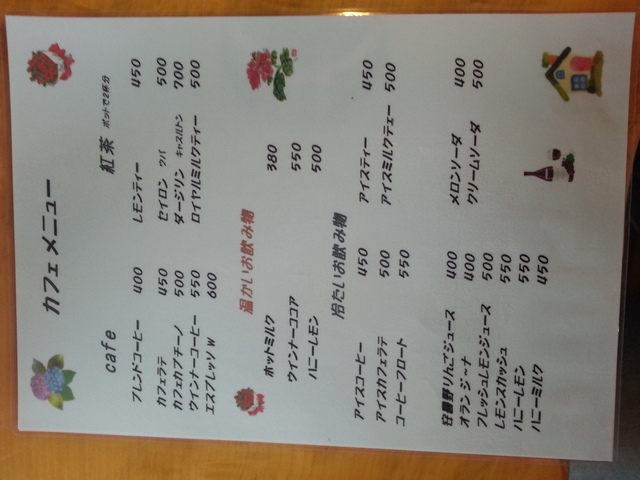 カフェメニュー
cafe
ブレンドコーヒー 400
カフェラテ 450
カフェカプチーノ 500
ウインナーコーヒー 550
エスプレッソ W 600
紅茶 ポットで2杯分
レモンティー 450
セイロン ウバ 500
ダージリン キャスルトン 700
ロイヤルミルクティー 500
温かいお飲み物
ホットミルク 380
ウインナーココア 550
ハニーレモン 500
冷たいお飲み物
アイスコーヒー 450
アイスカフェラテ 500
コーヒーフロート 550
アイスティー 450
アイスミルクテェー 500
安曇野りんごジュース 400
オランジーナ 400
フレッシュレモンジュース 500
レモンスカッシュ 550
ハニーレモン 550
ハニーミルク 450
メロンソーダ 400
クリームソーダ 500